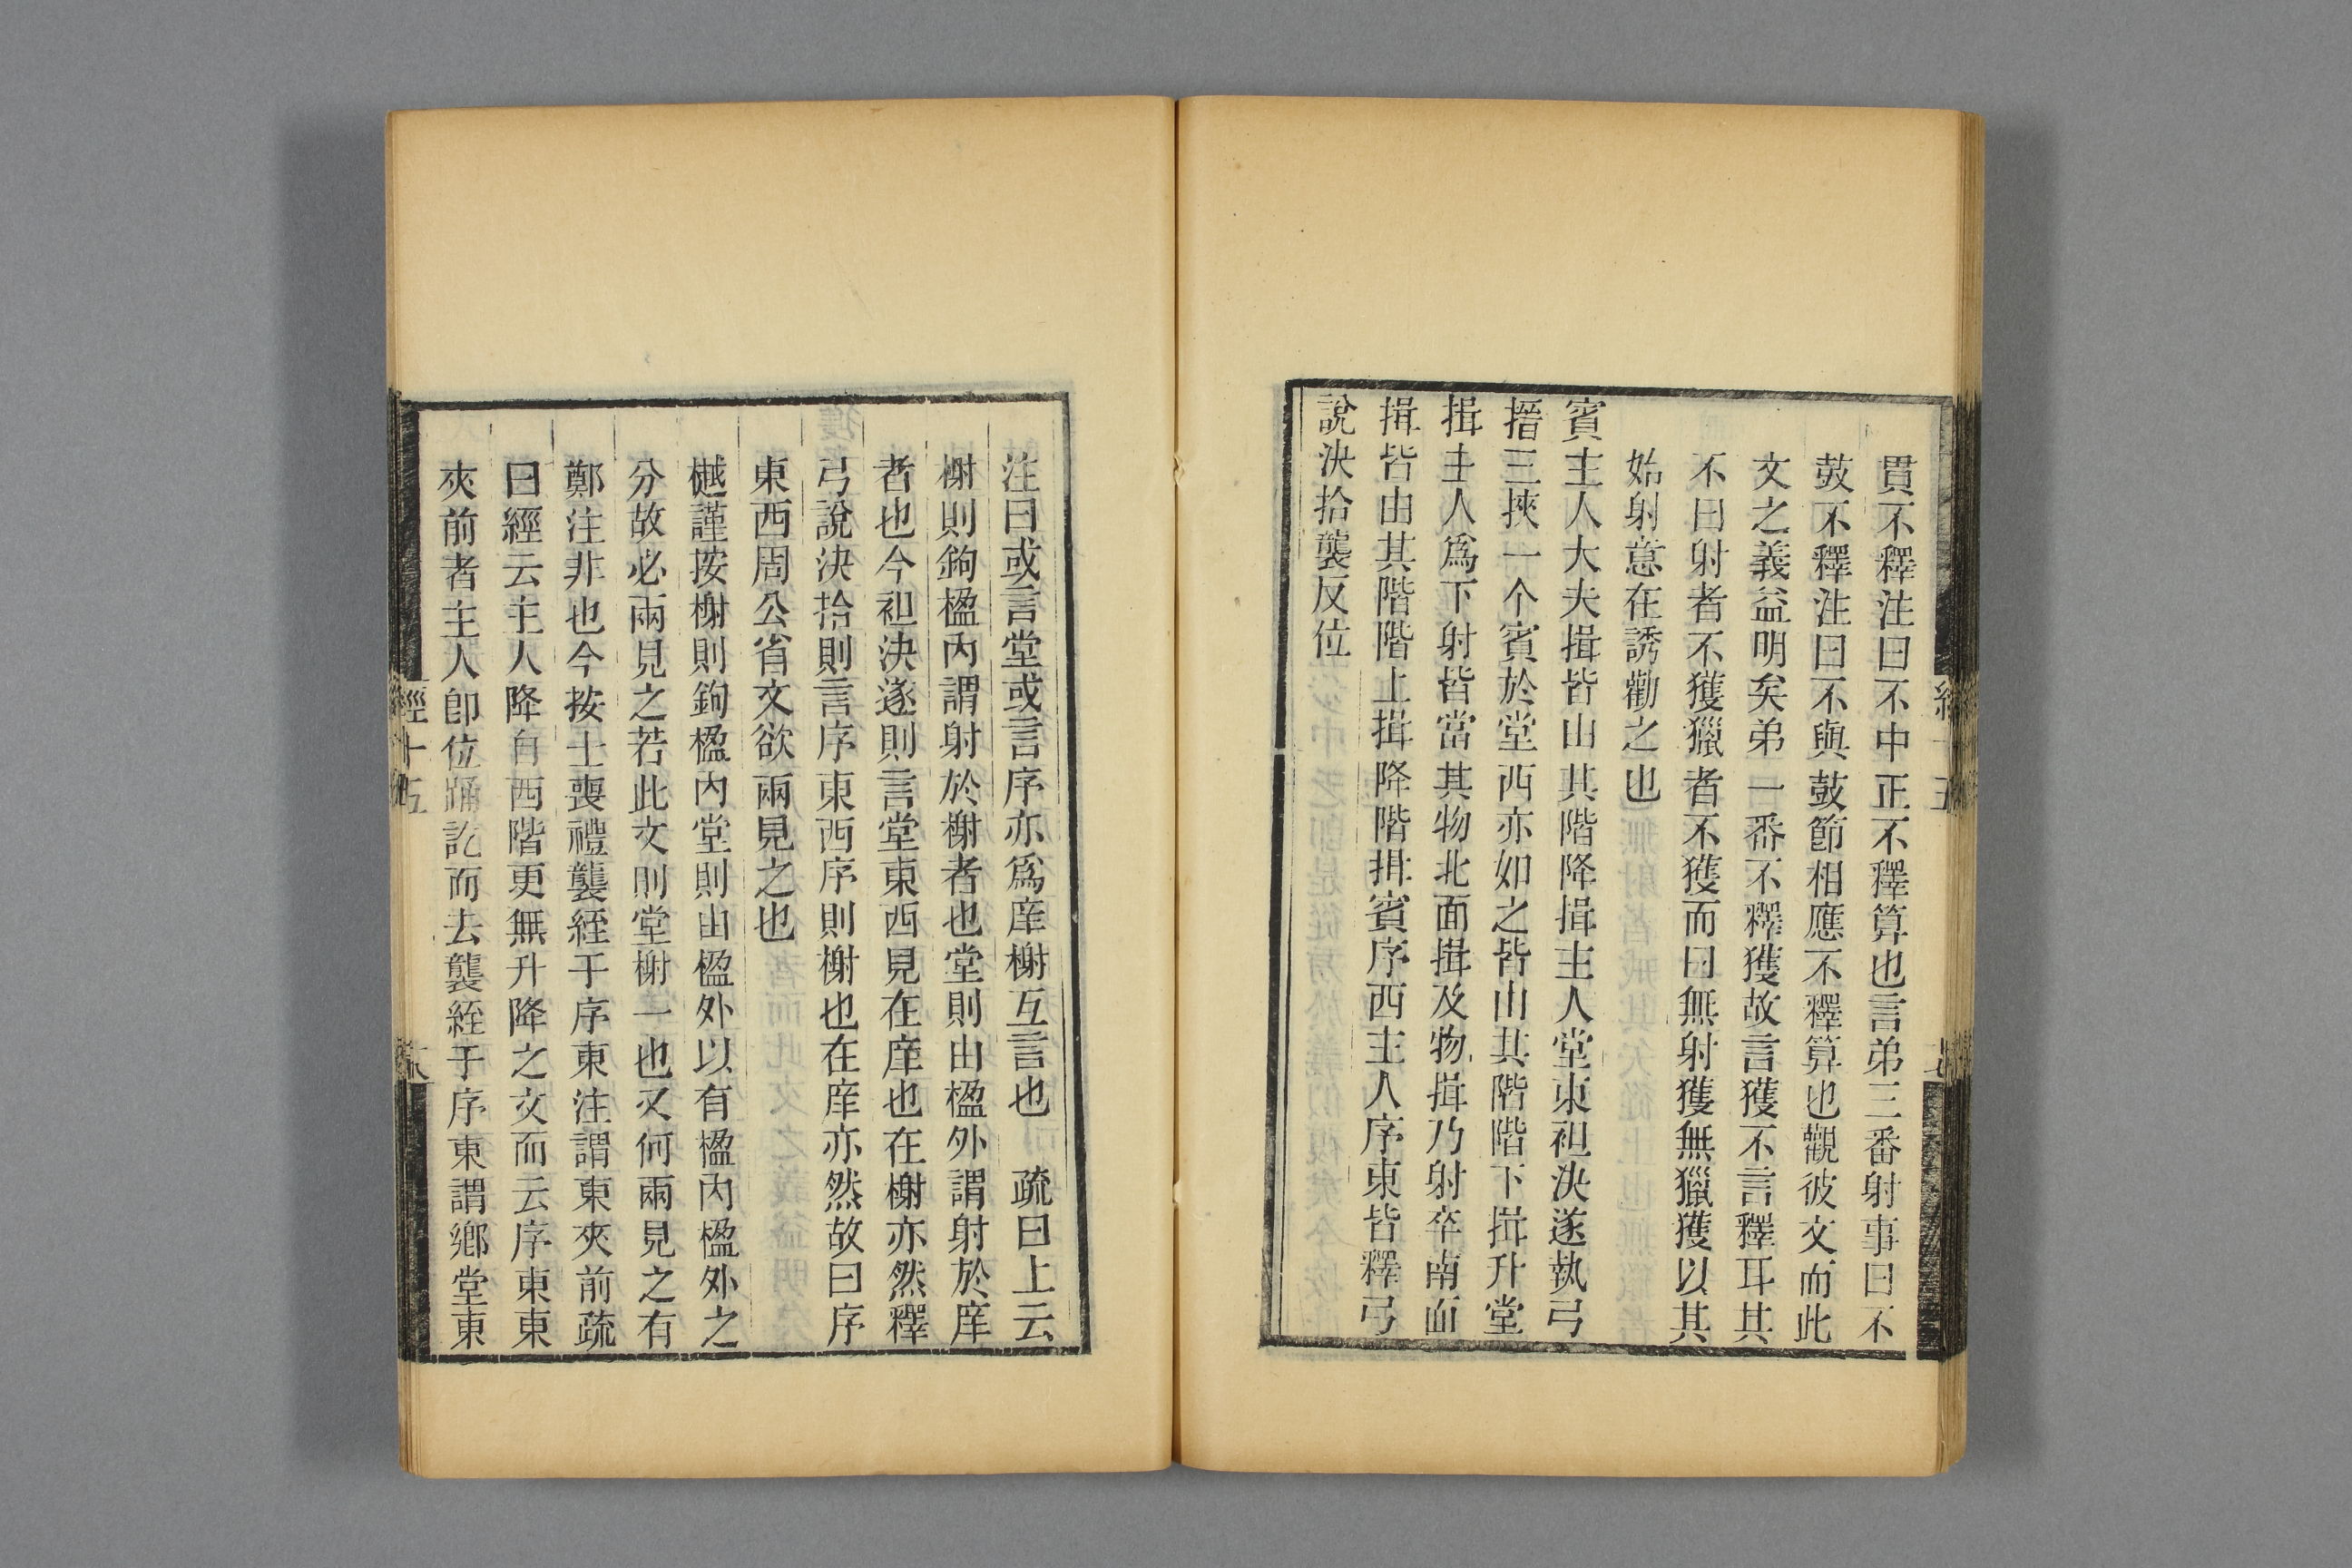 貫不釋注曰不中正不釋算也言弟三番射事曰不
鼓不釋注曰不與鼓節相應不釋算也觀彼文而此
文之義益明矣弟一番不釋獲故言獲不言釋耳其
不曰射者不獲獵者不獲而曰無射獲無獵獲以其
始射意在誘勸之也
賓主人大夫揖皆由其階降揖主人堂東袒決遂執弓
搢三挾一个賓於堂西亦如之皆由其階階下揖升堂
揖主人爲下射皆當其物北面揖及物揖乃射卒南面
揖皆由其階階上揖降階揖賓序西主人序東皆釋弓
說決拾襲反位
注曰或言堂或言序亦爲庠榭互言也 疏曰上云
榭則鉤楹內謂射於榭者也堂則由楹外謂射於庠
者也今袒決遂則言堂東西見在庠也在榭亦然釋
弓說決拾則言序東西序則榭也在庠亦然故曰序
東西周公省文欲兩見之也
樾謹按榭則鉤楹內堂則由楹外以有楹內楹外之
分故必兩見之若此文則堂榭一也又何兩見之有
鄭注非也今按士喪禮襲絰于序東注謂東夾前疏
曰經云主人降自西階更無升降之文而云序東東
夾前者主人卽位踊訖而去襲絰于序東謂鄉堂東
經十五